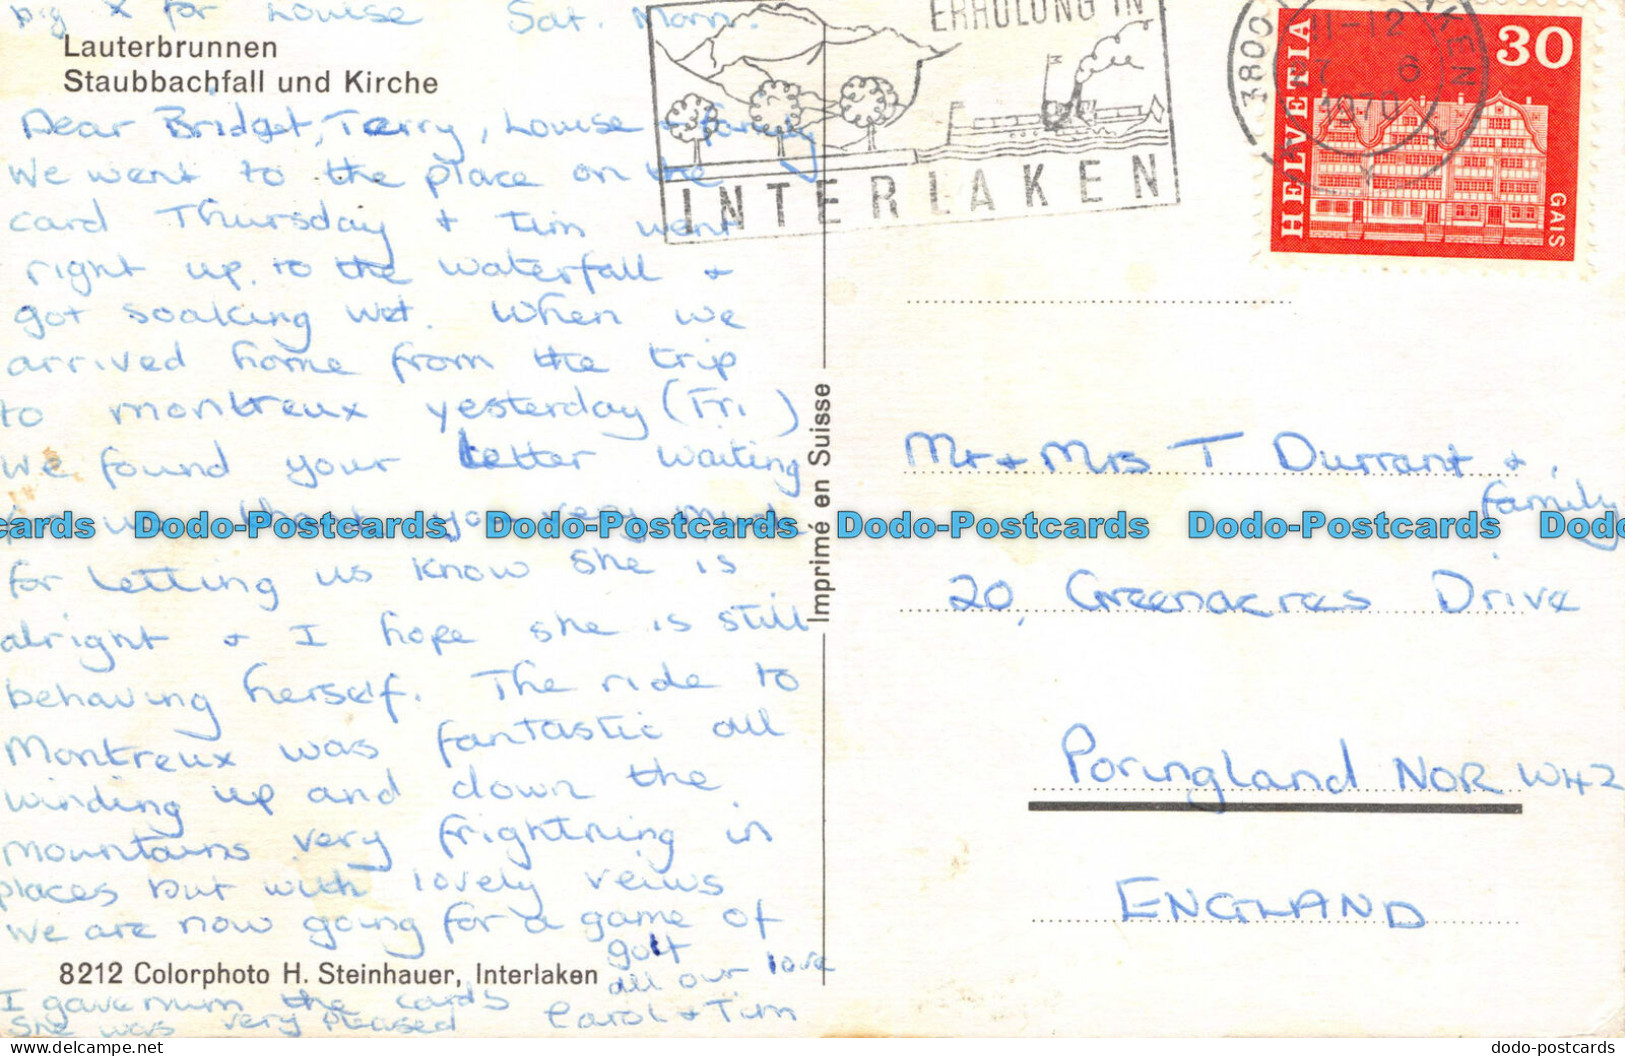 big X for Louise Sat. Morn.
Lauterbrunnen
Staubbachfall und Kirche
Dear Bridget, Terry, Louise + family
We went to the place on the
card Thursday + Tim went
right up to the waterfall +
got soaking wet. When we
arrived home from the trip
to montreux yesterday (Fri)
we found your letter waiting
for us. Thank you very much
for letting us know she is
alright + I hope she is still
behaving herself. The ride to
Montreux was fantastic all
winding up and down the
mountains very frightning in
places but with lovely veiws
We are now going for a game of
golf
8212 Colorphoto H. Steinhauer, Interlaken
all our love
I gave mum the cards
She was very pleased
Carol + Tim
Imprimé en Suisse
ERHOLUNG IN
INTERLAKEN
3800
11-12
27 6
1970
HELVETIA
30
GAIS
Mr + Mrs T Durrant +
family
20, Greenacres Drive
Poringland NOR WH2
ENGLAND
cards Dodo-Postcards Dodo-Postcards Dodo-Postcards Dodo-Postcards Dodo
© The owner of www.delcampe.net
dodo-postcards